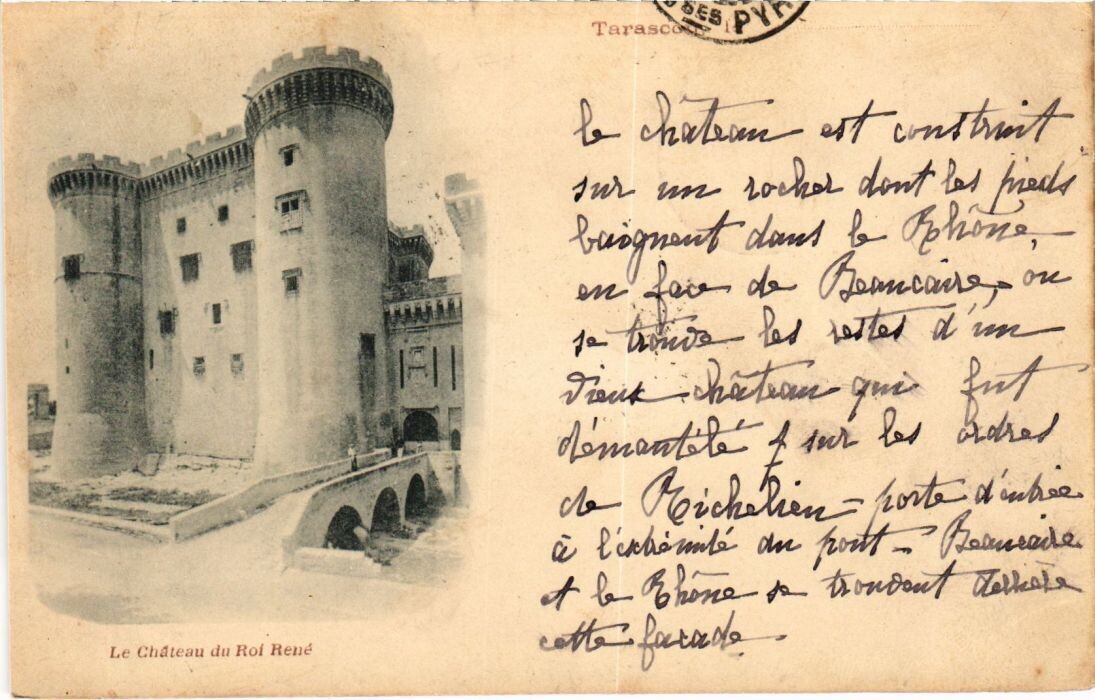 SES PYR
Tarascon, le
le château est construit
sur un rocher dont les pieds
baignent dans le Rhône,
en face de Beaucaire, ou
se trouve les restes d'un
vieux château qui fut
démantélé sur les ordres
de Richelieu - porte d'entrée
à l'extrémité du pont - Beaucaire
et le Rhône se trouvent derrière
cette façade.
Le Château du Roi René